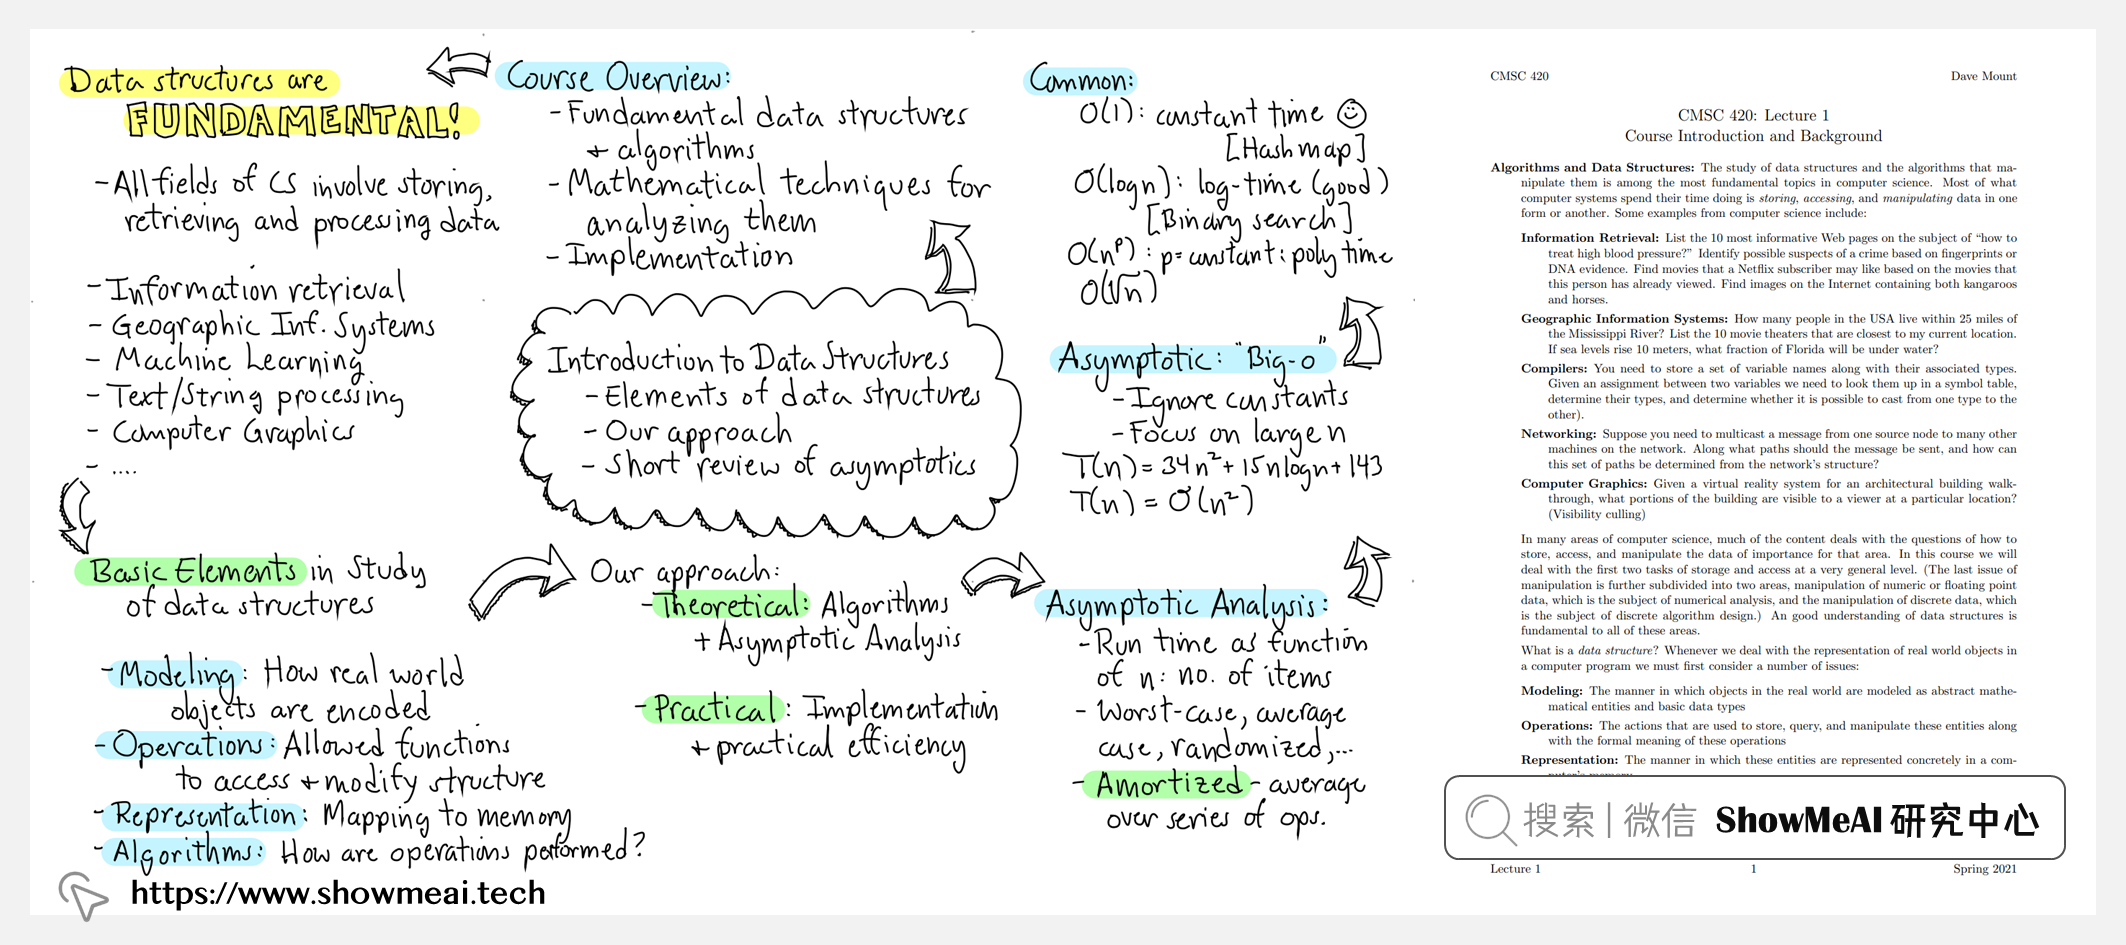 Data structures are
FUNDAMENTAL!
- All fields of CS involve storing,
retrieving and processing data
- Information retrieval
- Geographic Inf. Systems
- Machine Learning
- Text/String processing
- Computer Graphics
- ....
Basic Elements in Study
of data structures
- Modeling: How real world
objects are encoded
- Operations: Allowed functions
to access + modify structure
- Representation: Mapping to memory
- Algorithms: How are operations performed?
https://www.showmeai.tech
Course Overview:
- Fundamental data structures
+ algorithms
- Mathematical techniques for
analyzing them
- Implementation
Introduction to Data Structures
- Elements of data structures
- Our approach
- Short review of asymptotics
Our approach:
- Theoretical: Algorithms
+ Asymptotic Analysis
- Practical: Implementation
+ practical efficiency
Common:
O(1): constant time ☺
[Hash map]
O(log n): log-time (good)
[Binary search]
O(nᵖ): p = constant: poly time
O(√n)
Asymptotic: "Big-O"
- Ignore constants
- Focus on large n
T(n) = 34n² + 15nlogn + 143
T(n) = O(n²)
Asymptotic Analysis:
- Run time as function
of n: no. of items
- Worst-case, average
case, randomized,...
- Amortized - average
over series of ops.
CMSC 420 Dave Mount
CMSC 420: Lecture 1
Course Introduction and Background
Algorithms and Data Structures: The study of data structures and the algorithms that ma-
nipulate them is among the most fundamental topics in computer science. Most of what
computer systems spend their time doing is storing, accessing, and manipulating data in one
form or another. Some examples from computer science include:
Information Retrieval: List the 10 most informative Web pages on the subject of “how to
treat high blood pressure?” Identify possible suspects of a crime based on fingerprints or
DNA evidence. Find movies that a Netflix subscriber may like based on the movies that
this person has already viewed. Find images on the Internet containing both kangaroos
and horses.
Geographic Information Systems: How many people in the USA live within 25 miles of
the Mississippi River? List the 10 movie theaters that are closest to my current location.
If sea levels rise 10 meters, what fraction of Florida will be under water?
Compilers: You need to store a set of variable names along with their associated types.
Given an assignment between two variables we need to look them up in a symbol table,
determine their types, and determine whether it is possible to cast from one type to the
other).
Networking: Suppose you need to multicast a message from one source node to many other
machines on the network. Along what paths should the message be sent, and how can
this set of paths be determined from the network’s structure?
Computer Graphics: Given a virtual reality system for an architectural building walk-
through, what portions of the building are visible to a viewer at a particular location?
(Visibility culling)
In many areas of computer science, much of the content deals with the questions of how to
store, access, and manipulate the data of importance for that area. In this course we will
deal with the first two tasks of storage and access at a very general level. (The last issue of
manipulation is further subdivided into two areas, manipulation of numeric or floating point
data, which is the subject of numerical analysis, and the manipulation of discrete data, which
is the subject of discrete algorithm design.) An good understanding of data structures is
fundamental to all of these areas.
What is a data structure? Whenever we deal with the representation of real world objects in
a computer program we must first consider a number of issues:
Modeling: The manner in which objects in the real world are modeled as abstract mathe-
matical entities and basic data types
Operations: The actions that are used to store, query, and manipulate these entities along
with the formal meaning of these operations
Representation: The manner in which these entities are represented concretely in a com-
搜索 | 微信 ShowMeAI 研究中心
Lecture 1 1 Spring 2021